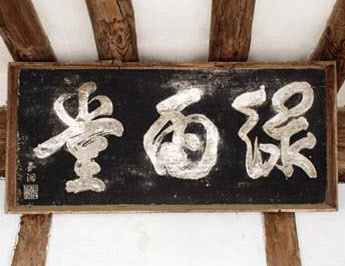 綠雨堂